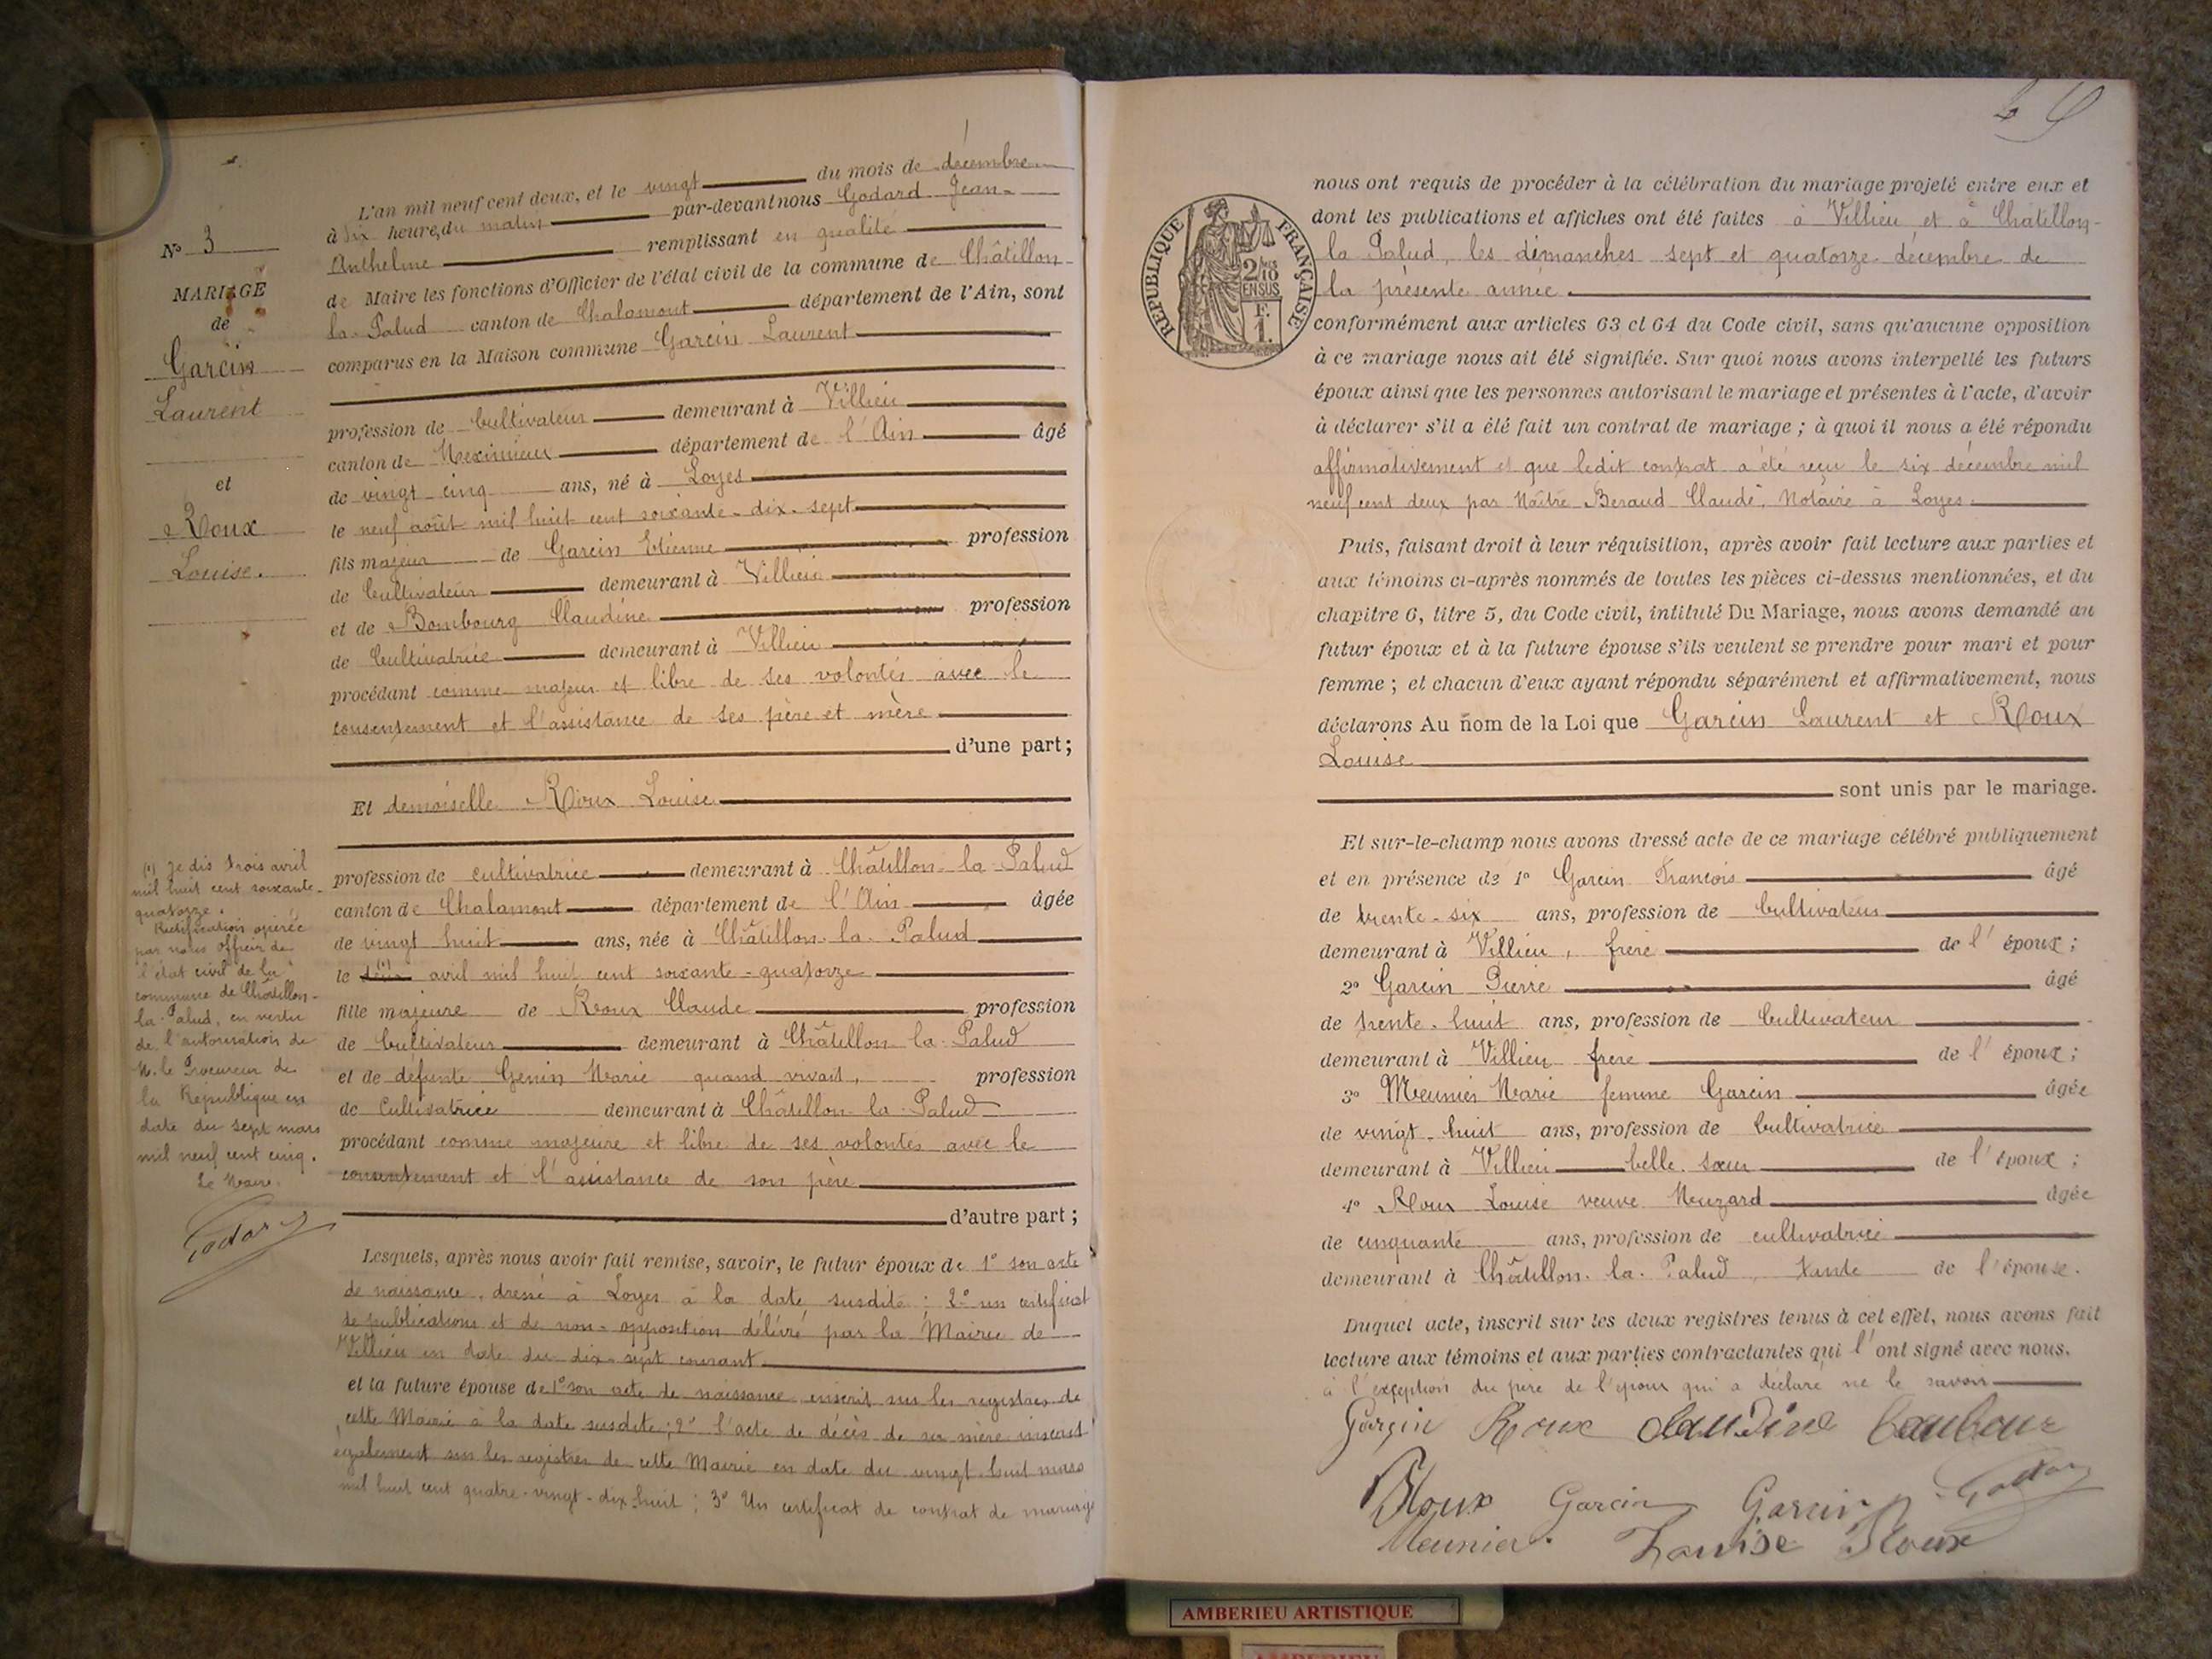 L'an mil neuf cent deux, et le vingt du mois de décembre
à six heures du matin par-devant nous Godard Jean-
Anthelme remplissant en qualité
de Maire les fonctions d'Officier de l'état civil de la commune de Châtillon-
la-Palud canton de Chalamont département de l'Ain, sont
comparus en la Maison commune Garcin Laurent
profession de Cultivateur demeurant à Villieu
canton de Meximieux département de l'Ain âgé
de vingt cinq ans, né à Loyes
le neuf août mil huit cent soixante-dix-sept
fils majeur de Garcin Etienne profession
de Cultivateur demeurant à Villieu
et de Bombourg Claudine profession
de Cultivatrice demeurant à Villieu
procédant comme majeur et libre de ses volontés avec le
consentement et l'assistance de ses père et mère
d'une part;
Et demoiselle Roux Louise
profession de cultivatrice demeurant à Châtillon-la-Palud
canton de Chalamont département de l'Ain âgée
de vingt huit ans, née à Châtillon-la-Palud
le (1) avril mil huit cent soixante-quatorze
fille majeure de Roux Claude profession
de Cultivateur demeurant à Châtillon-la-Palud
et de défunte Genin Marie quand vivait, profession
de Cultivatrice demeurant à Châtillon-la-Palud
procédant comme majeure et libre de ses volontés avec le
consentement et l'assistance de son père
d'autre part;
Lesquels, après nous avoir fait remise, savoir, le futur époux de 1º son acte
de naissance, dressé à Loyes à la date susdite; 2º un certificat
de publications et de non-opposition délivré par la Mairie de
Villieu en date du dix-sept courant
et la future épouse de 1º son acte de naissance inscrit sur les registres de
cette Mairie à la date susdite; 2º l'acte de décès de sa mère inscrit
également sur les registres de cette Mairie en date du vingt-huit mars
mil huit cent quatre-vingt-dix-huit; 3º Un certificat de contrat de mariage
Nº 3
MARIAGE
de
Garcin
Laurent
et
Roux
Louise.
(1) Je dis trois avril
mil huit cent soixante-
quatorze.
Rectification opérée
par nous officier de
l'état civil de la
commune de Châtillon-
la-Palud, en vertu
de l'autorisation de
M. le Procureur de
la République en
date du sept mars
mil neuf cent cinq.
Le Maire.
Godard
nous ont requis de procéder à la célébration du mariage projeté entre eux et
dont les publications et affiches ont été faites à Villieu et à Châtillon-
la Palud, les dimanches sept et quatorze décembre de
la présente année.
conformément aux articles 63 et 64 du Code civil, sans qu'aucune opposition
à ce mariage nous ait été signifiée. Sur quoi nous avons interpellé les futurs
époux ainsi que les personnes autorisant le mariage et présentes à l'acte, d'avoir
à déclarer s'il a été fait un contrat de mariage; à quoi il nous a été répondu
affirmativement et que ledit contrat a été reçu le six décembre mil
neuf cent deux par Maître Beraud Claude, Notaire à Loyes.
Puis, faisant droit à leur réquisition, après avoir fait lecture aux parties et
aux témoins ci-après nommés de toutes les pièces ci-dessus mentionnées, et du
chapitre 6, titre 5, du Code civil, intitulé Du Mariage, nous avons demandé au
futur époux et à la future épouse s'ils veulent se prendre pour mari et pour
femme; et chacun d'eux ayant répondu séparément et affirmativement, nous
déclarons Au nom de la Loi que Garcin Laurent et Roux
Louise
sont unis par le mariage.
Et sur-le-champ nous avons dressé acte de ce mariage célébré publiquement
et en présence de 1º Garcin François âgé
de trente-six ans, profession de Cultivateur
demeurant à Villieu, frère de l'époux;
2º Garcin Pierre âgé
de trente-huit ans, profession de Cultivateur
demeurant à Villieu frère de l'époux;
3º Meunier Marie femme Garcin âgée
de vingt-huit ans, profession de Cultivatrice
demeurant à Villieu belle-sœur de l'époux;
4º Roux Louise veuve Meuzard âgée
de cinquante ans, profession de cultivatrice
demeurant à Châtillon-la-Palud, tante de l'épouse.
Duquel acte, inscrit sur les deux registres tenus à cet effet, nous avons fait
lecture aux témoins et aux parties contractantes qui l'ont signé avec nous.
à l'exception du père de l'époux qui a déclaré ne le savoir
Garçin Roux Claudine Baubour
Roux Garcin Garcin Godard
Meunier. Louise Roux
REPUBLIQUE FRANÇAISE
2/10
EN SUS
F.
1.
AMBERIEU ARTISTIQUE
AMBERIEU